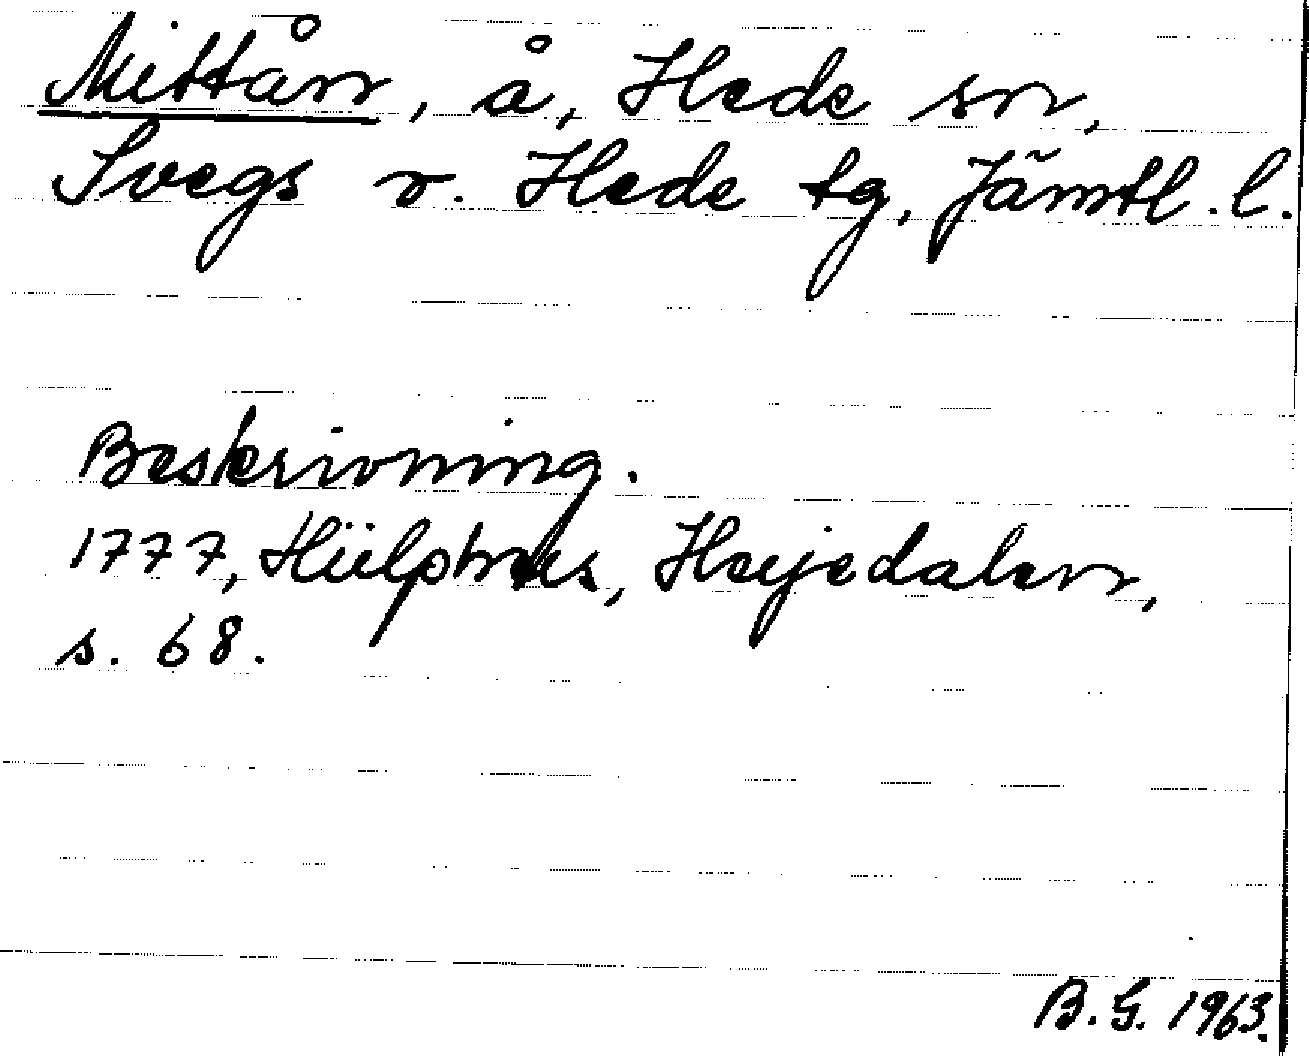 Mittån, å, Hede sn,
Svegs v. Hede tg, Jämtl. l.
Beskrivning.
1777, Hülphers, Herjedalen,
s. 68.
B. G. 1963.